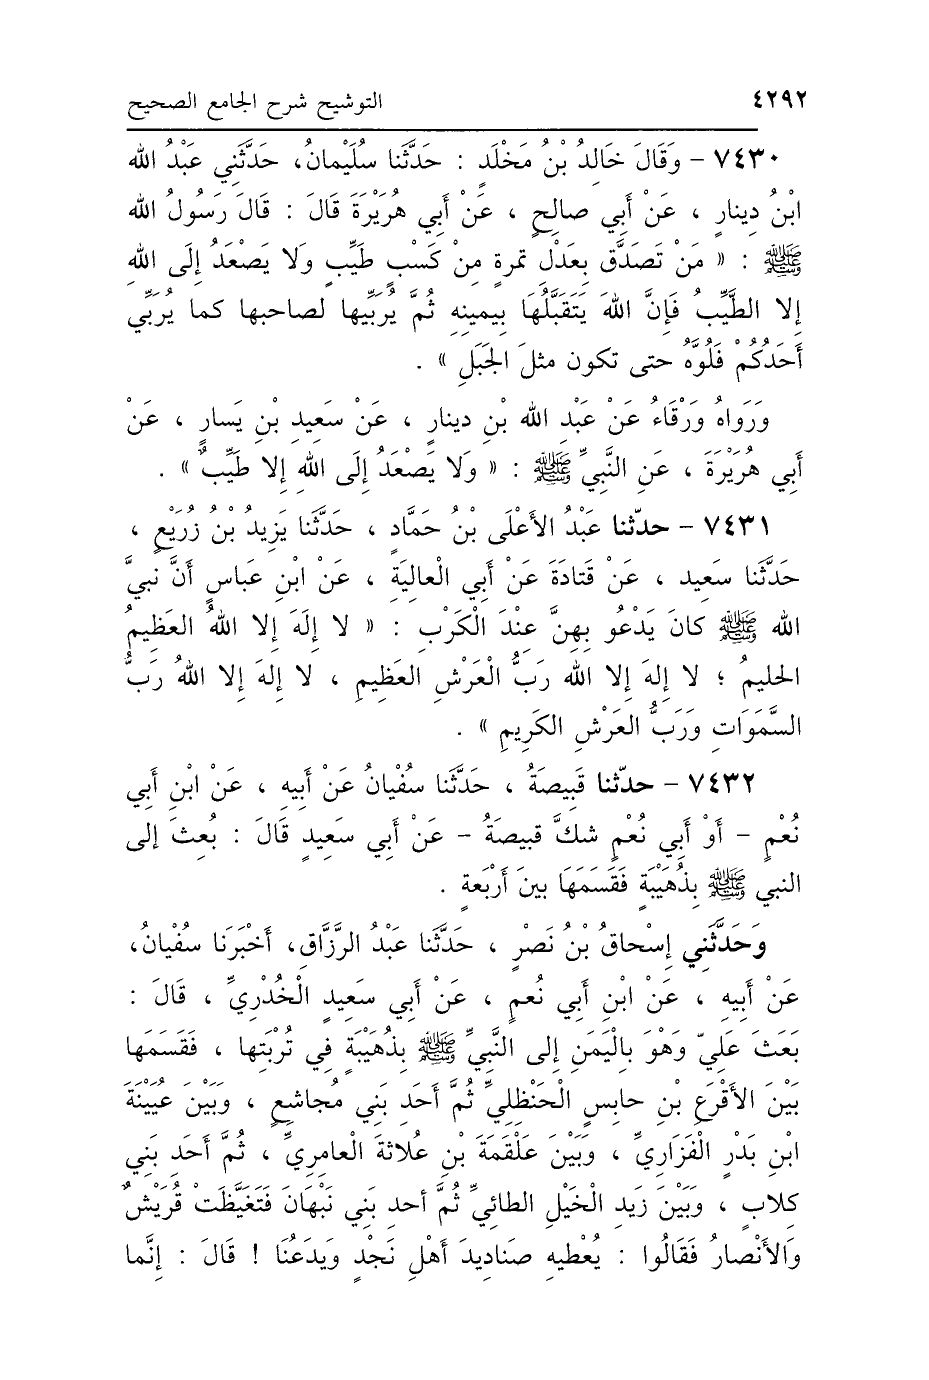 ٤٢٩٢ التوشيح شرح الجامع الصحيح
٧٤٣٠ - وَقَالَ خَالِدُ بْنُ مَخْلَدٍ : حَدَّثَنا سُلَيْمانُ، حَدَّثَنِي عَبْدُ الله
ابْنُ دِينارٍ ، عَنْ أَبِي صالِحٍ ، عَنْ أَبِي هُرَيْرَةَ قَالَ : قَالَ رَسُولُ الله
ﷺ : « مَنْ تَصَدَّقَ بِعَدْلِ تمرةٍ مِنْ كَسْبٍ طَيِّبٍ وَلا يَصْعَدُ إِلَى اللهِ
إِلا الطَّيِّبُ فَإِنَّ اللهَ يَتَقَبَّلُهَا بِيمينِهِ ثُمَّ يُرَبِّيها لصاحبها كما يُرَبِّي
أَحَدُكُمْ فَلُوَّهُ حتى تكون مثلَ الجَبَلِ » .
وَرَوَاهُ وَرْقَاءُ عَنْ عَبْدِ الله بْنِ دينارٍ ، عَنْ سَعِيدِ بْنِ يَسارٍ ، عَنْ
أَبِي هُرَيْرَةَ ، عَنِ النَّبِيِّ ﷺ : « وَلا يَصْعَدُ إِلَى اللهِ إِلا طَيِّبٌ » .
٧٤٣١ - حدّثنا عَبْدُ الأَعْلَى بْنُ حَمَّادٍ ، حَدَّثَنا يَزِيدُ بْنُ زُرَيْعٍ ،
حَدَّثَنا سَعِيد ، عَنْ قَتادَةَ عَنْ أَبي الْعالِيَةِ ، عَنْ ابْنِ عَباسٍ أَنَّ نَبيَّ
الله ﷺ كانَ يَدْعُو بِهِنَّ عِنْدَ الْكَرْبِ : « لا إِلَهَ إِلا اللهُ العَظِيمُ
الحليمُ ؛ لا إِلهَ إِلا الله رَبُّ الْعَرْشِ العَظِيمِ ، لا إِلهَ إِلا اللهُ رَبُّ
السَّمَوَاتِ وَرَبُّ العَرْشِ الكَرِيمِ » .
٧٤٣٢ - حدّثنا قَبِيصَةُ ، حَدَّثَنَا سُفْيانُ عَنْ أَبيهِ ، عَنْ ابْنِ أَبي
نُعْمٍ - أَوْ أَبي نُعْمٍ شكَّ قبيصَةُ - عَنْ أَبي سَعِيدٍ قَالَ : بُعثَ إِلى
النبي ﷺ بِذُهَيْبَةٍ فَقَسَمَهَا بينَ أَرْبَعةٍ .
وَحَدَّثَنِي إِسْحاقُ بْنُ نَصْرٍ ، حَدَّثَنا عَبْدُ الرَّزَّاقِ، أَخْبَرَنَا سُفْيانُ،
عَنْ أَبيهِ ، عَنْ ابْنِ أَبي نُعمٍ ، عَنْ أَبي سَعِيدٍ الْخُدْرِيِّ ، قَالَ :
بَعَثَ عَلِيّ وَهْوَ بِالْيَمَنِ إِلى النَّبِيِّ ﷺ بِذُهَيْبَةٍ فِي تُرْبَتِها ، فَقَسَمَها
بَيْنَ الأَقْرَعِ بْنِ حابِسٍ الْحَنْظَلِيِّ ثُمَّ أَحَدِ بَنِي مُجاشِعٍ ، وَبَيْنَ عُيَيْنَةَ
ابْنِ بَدْرٍ الْفَزَارِيِّ ، وَبَيْنَ عَلْقَمَةَ بْنِ عُلاثةَ العامِرِيِّ ، ثُمَّ أَحَدِ بَنِي
كلابٍ ، وَبَيْنَ زَيدِ الْخَيْلِ الطائيِّ ثُمَّ أحدِ بَنِي نَبْهَانَ فَتَغَيَّظَتْ قُرَيْشٌ
وَالأَنْصارُ فَقَالُوا : يُعْطِيهِ صَنادِيدَ أَهْلِ نَجْدٍ وَيَدَعُنَا ! قَالَ : إِنَّما